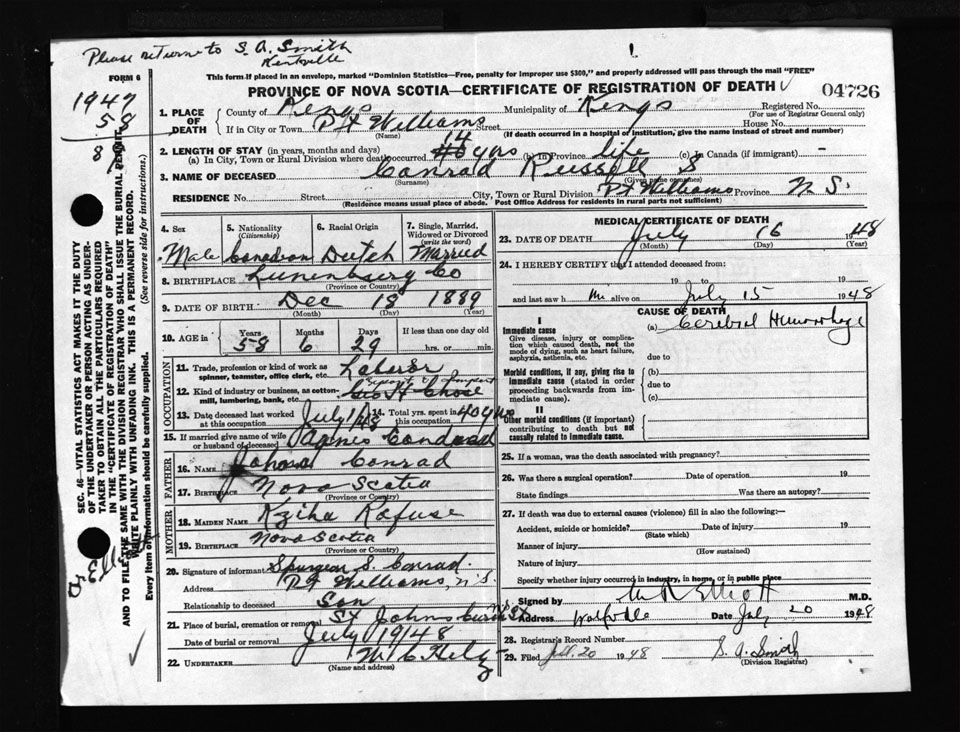 Please return to S. A. Smith
Kentville
FORM 6
This form if placed in an envelope, marked "Dominion Statistics—Free, penalty for improper use $300," and properly addressed will pass through the mail "FREE"
PROVINCE OF NOVA SCOTIA—CERTIFICATE OF REGISTRATION OF DEATH
04726
1947
58
8
1. PLACE OF DEATH County of Kings Municipality of Kings Registered No.
(For use of Registrar General only)
If in City or Town Pt Williams Street House No.
(Name) (If death occurred in a hospital or institution, give the name instead of street and number)
2. LENGTH OF STAY (in years, months and days)
(a) In City, Town or Rural Division where death occurred 14 yrs (b) In Province life (c) In Canada (if immigrant) -
3. NAME OF DECEASED Conrad Russell S
(Surname) (Given name or names)
RESIDENCE No. Street City, Town or Rural Division Pt Williams Province N S.
(Residence means usual place of abode. Post Office Address for residents in rural parts not sufficient)
4. Sex Male
5. Nationality (Citizenship) Canadian
6. Racial Origin Dutch
7. Single, Married, Widowed or Divorced (write the word) Married
8. BIRTHPLACE Lunenburg Co
(Province or Country)
9. DATE OF BIRTH Dec 18 1889
(Month) (Day) (Year)
10. AGE in Years 58 Months 6 Days 29 If less than one day old hrs. or min.
OCCUPATION
11. Trade, profession or kind of work as spinner, teamster, office clerk, etc. Laborer
12. Kind of industry or business, as cotton-mill, lumbering, bank, etc.
13. Date deceased last worked at this occupation July 1/48
14. Total yrs. spent in this occupation 40 yrs
15. If married give name of wife or husband of deceased Agnes Condrad
FATHER
16. NAME Conrad
17. BIRTHPLACE Nova Scotia
(Province or Country)
MOTHER
18. MAIDEN NAME Kziha Rafuse
19. BIRTHPLACE Nova Scotia
(Province or Country)
20. Signature of informant Spurgeon S. Conrad.
Address Pt Williams, N. S.
Relationship to deceased Son
21. Place of burial, cremation or removal St Johns
Date of burial or removal July 19/48
22. UNDERTAKER
(Name and address)
MEDICAL CERTIFICATE OF DEATH
23. DATE OF DEATH July 16 1948
(Month) (Day) (Year)
24. I HEREBY CERTIFY that I attended deceased from:
19 to 19
and last saw h im alive on July 15 1948
CAUSE OF DEATH
I
Immediate cause
Give disease, injury or complication which caused death, not the mode of dying, such as heart failure, asphyxia, asthenia, etc.
(a) Cerebral Hemorrhage
due to
Morbid conditions, if any, giving rise to immediate cause (stated in order proceeding backwards from immediate cause).
(b)
due to
(c)
II
Other morbid conditions (if important) contributing to death but not causally related to immediate cause.
25. If a woman, was the death associated with pregnancy?
26. Was there a surgical operation? Date of operation 19
State findings Was there an autopsy?
27. If death was due to external causes (violence) fill in also the following:—
Accident, suicide or homicide? Date of injury 19
(State which)
Manner of injury
(How sustained)
Nature of injury
Specify whether injury occurred in industry, in home, or in public place
Signed by Elliott M.D.
Address Wolfville Date July 20 1948
28. Registrar's Record Number
29. Filed Jul. 20 1948 S. A. Smith
(Division Registrar)
SEC. 46—VITAL STATISTICS ACT MAKES IT THE DUTY
OF THE UNDERTAKER OR PERSON ACTING AS UNDER-
TAKER TO OBTAIN ALL THE PARTICULARS REQUIRED
IN THE "CERTIFICATE OF REGISTRATION OF DEATH"
AND TO FILE THE SAME WITH THE DIVISION REGISTRAR WHO SHALL ISSUE THE BURIAL PERMIT.
WRITE PLAINLY WITH UNFADING INK. THIS IS A PERMANENT RECORD.
Every item of information should be carefully supplied.
(See reverse side for instructions.)